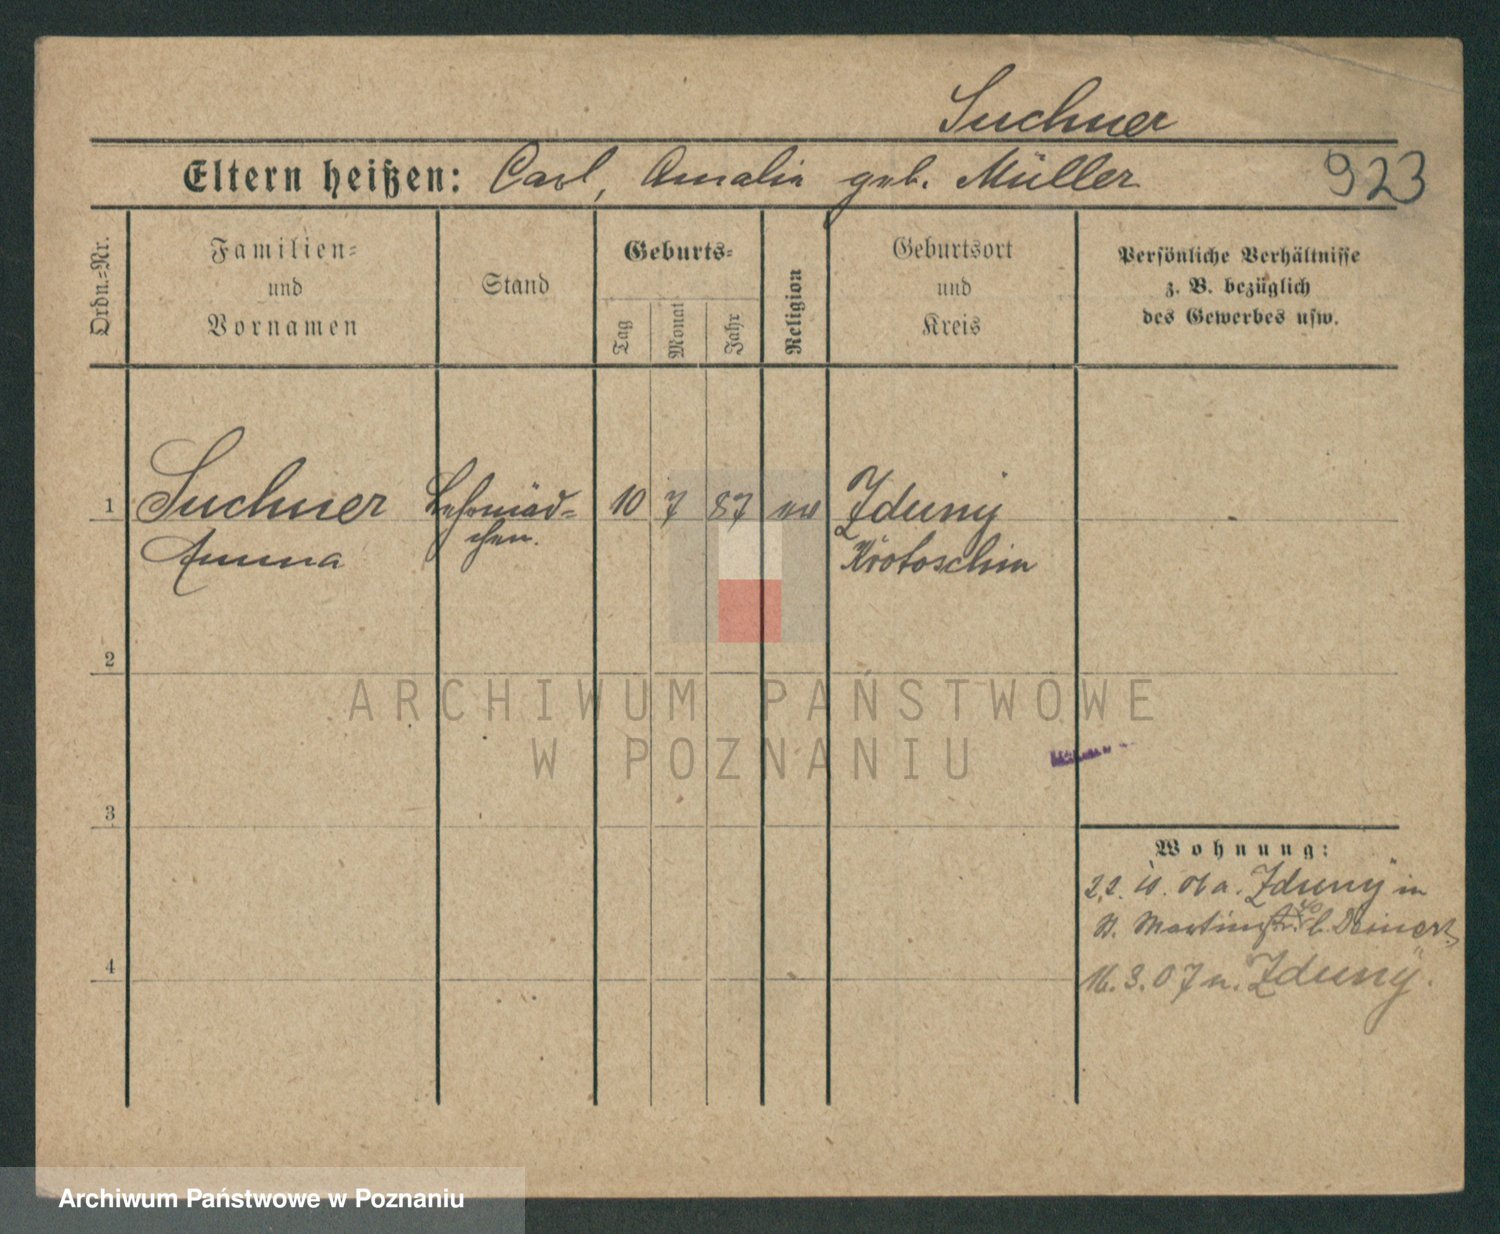 Suchner
Eltern heißen: Carl, Amalie geb. Müller
923
Ordn.-Nr.
Familien-
und
Vornamen
Stand
Geburts-
Tag
Monat
Jahr
Religion
Geburtsort
und
Kreis
Persönliche Verhältnisse
z. B. bezüglich
des Gewerbes usw.
1 Suchner Lehrmäd- 10 7 87 ev Zduny
Anna chen. Krotoschin
2
ARCHIWUM PAŃSTWOWE
W POZNANIU
3
Wohnung:
22. 10. 06 a. Zduny in
St. Martinstr. b. Deinert
4
16. 3. 07 n. Zduny.
Archiwum Państwowe w Poznaniu